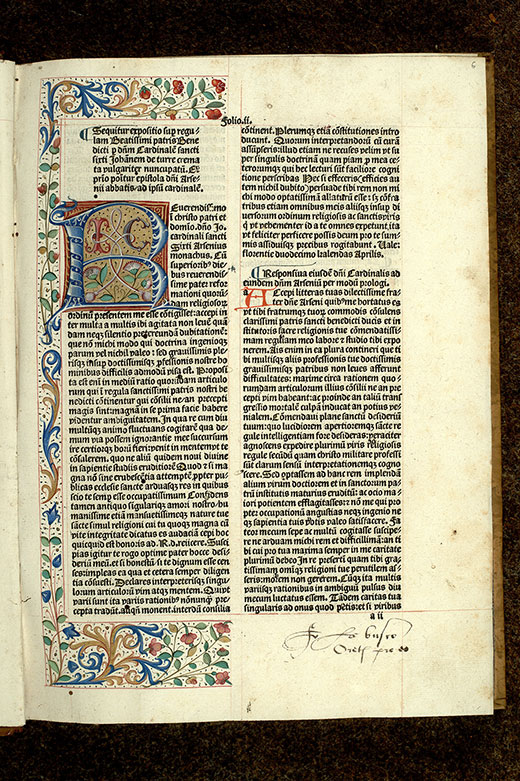 6
Folio.ii.
¶ Sequitur expositio sup regu-
lam Beatissimi patris Bene
dicti p dñm Cardinalē sancti
sixti Johānem de turre crema
ta vulgariter nuncupatū. Et
prio pōitur epistola dñi Arse
nii abbatis ad ipsū cardinalē.
REuerendissimo
ī christo patri et
domīo.dño.Jo.
cardinali sancti
Arsenius
monachus. Cū
superiorib9 die-
bus reuerendis-
sime pater refor
mationi quorū-
dam religiosoꝝ
ordinū presentem me esse cōtigisset: accepi in
ter multa a multis ibi agitata non leuē quā
dam neq̄ silentio p̄tereundā dubitationē:
que nō michi modo qui doctrina ingenioq̄
parum vel nichil valeo: sed grauissimis ple-
risq̄ ipsisq̄ doctissimisq̄ p̄fessionis nostre ho
minibus difficilis admodū visa est. Proposi
ta est eni in mediū ratio quorūdam articulo
rum qui ī regula sanctissimi patris nostri be
nedicti cōtinentur qui cōsilii ne an precepti
magis sint: magnā in se prima facie habere
videntur ambiguitatem. In qua re cum diu
multūq̄ animo fluctuans cogitarē qua de-
mum via possem ignorantie mee succursum
ire certiorq̄ horū fieri: venit in mentem te
cōsulerem. quo ne aliū quidem noui diuine
in sapientie studiis eruditiorē. Quod etsi ma
gna nō sine erubescētia attemptē ppter pu-
blicas ecclesie sancte arduasq̄ res in quibus
scio te semp esse occupatissimum Confidens
tamen antiquo singulariq̄ amori nostro: hu
manissime etiā mansuetissimeq̄ nature tue
sācte simul religioni cui tu quoq̄ magna cū
vite integritate dicatus es audacia cepi hoc
quicquid est honoris ad. R.d.reiicere. Susci
pias igitur te rogo optime pater hocce desi-
deriū meū.et si bonū sit te dignum esse cen
ses: impleas ea qua et cetera semper diligen
tia cōsueuisti. Declares interpreterisq̄ singu-
lorum articulorū vim atq̄ mentem. Quippe
varii sunt ita variis rationib9 nōnunq̄ pre
cepta tradūt.aliq̄ monent.interdū consilia
cōtinent. Plerumq̄ etiā cōstitutiones intro
ducunt. Quorum interpretandorū cū curā
assūpseris: illud etiam ne recuses velim vt su
per singulis doctrinā quam piam p mea ce-
terorumq̄ qui hec lecturi sūt faciliore cogni
tione perscribas Ac si effeceris (efficies au
tem nichil dubito) persuade tibi rem non mi
chi modo optatissimā allaturū esse: sz cōfra
tribus etiam omnibus meis aliisq̄ insup di
uersorum ordinum religiosis ac sanctis viris
q vt vehementer id a te omnes expetunt, ita
vt feliciter perficere possis deum pro te sum-
mis assiduisq̄ precibus rogitabunt. Uale:
florentie duodecimo kalendas Aprilis.
¶ Responsiua eiusdē dñi Cardinalis ad
eundem dñm Arseniū per modū prologi.
a Accepi litteras tuas dilectissime fra
ter dñe Arseni quib9 me hortatus es
vt tibi fratrumq̄ tuoꝝ commodis cōsulens
clarissimi patris sancti benedicti ducis et in-
stitutoris sacre religionis tue cōmendatissi-
mam regulam meo labore et studio tibi expo
nerem. Ais enim in ea plura contineri que ti
bi multisq̄ aliis professionis tue doctissimis
grauissimisq̄ patribus non leues afferunt
difficultates: maxime circa rationem quo-
rundam articulorum illius cōsilii ne an pre
cepti vim habeant: ac proinde an talium trans
gressio mortalē culpā inducat an potius ve-
nialem. Comendaui plane sanctū desideriū
tuum: quo lucidiorem apertioremq̄ sācte re
gule intelligentiam fore desideras: peraciter
agnoscens expedire plurimū viris religiosis
regule secūdū quam christo militare professi
sūt clarum sensū interpretationemq̄ cogno-
scere. Sed optassem ad hanc rem implendā
alium virum doctiorem et in sanctorum pa-
trū institutis maturius eruditū: ac ocio ma
iori potientem efflagitasses: nō me qui pro
pter occupationū angustias neq̄ ingenio ne
q̄ sapientia tuis votis paleo satisfacere. Fa
teor mecum sepe ac multū cogitasse suscipe-
re ne arduam michi rem et difficillimā: an ti
bi cui pro tua maxima semper in me caritate
plurimū debeo In re presertī quam tibi gra
tissimam omniq̄ religioni tue perutilem as-
seris: morem non gererem. Cūq̄ ita multis
variisq̄ rationibus in ambiguū pulsus diu
mecum luctatus essem. Tādem caritas tua
singularis ad onus quod petis: etsi viribus
a ii